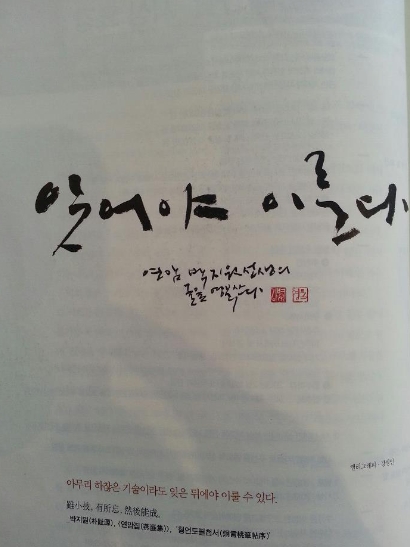 잊어야 이룬다.
연암 박지원선생의
글을
캘리그래피 · 강병인
아무리 하찮은 기술이라도 잊은 뒤에야 이룰 수 있다.
雖小技, 有所忘, 然後能成.
박지원(朴趾源), 〈연암집(燕巖集)〉, '형언도필첩서(炯言桃筆帖序)'